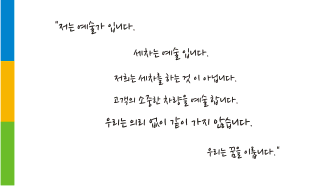 "저는 예술가 입니다.
세차는 예술 입니다.
저희는 세차를 하는 것 이 아닙니다.
고객의 소중한 차량을 예술 합니다.
우리는 의리 없이 같이 가지 않습니다.
우리는 꿈을 이룹니다."